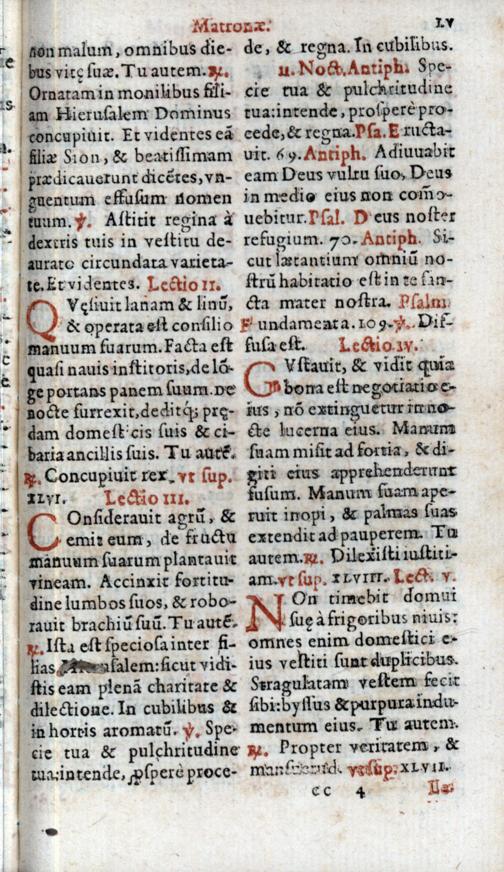 Matronæ.
LV
non malum, omnibus die-
bus vitę suæ. Tu autem. ℟.
Ornatam in monilibus fili-
am Hierusalem Dominus
concupiuit. Et videntes eã
filiæ Sion, & beatissimam
prædicauerunt dicẽtes, vn-
guentum effusum nomen
tuum. ℣. Astitit regina à
dextris tuis in vestitu de-
aurato circundata varieta-
te. Et videntes. Lectio II.
QVęsiuit lanam & linũ,
& operata est consilio
manuum suarum. Facta est
quasi nauis institoris, de lõ-
ge portans panem suum. De
nocte surrexit, deditq́; prę-
dam domesticis suis & ci-
baria ancillis suis. Tu autẽ.
℟. Concupiuit rex. vt sup.
XLVI. Lectio III.
COnsiderauit agrũ, &
emit eum, de fructu
manuum suarum plantauit
vineam. Accinxit fortitu-
dine lumbos suos, & robo-
rauit brachiũ suũ. Tu autẽ.
℟. Ista est speciosa inter fi-
lias usalem: sicut vidi-
stis eam plenã charitate &
dilectione. In cubilibus &
in hortis aromatũ. ℣. Spe-
cie tua & pulchritudine
tua: intende, ꝓsperè proce-
de, & regna. In cubilibus.
II. Noct. Antiph. Spe-
cie tua & pulchritudine
tua: intende, prosperè pro-
cede, & regna. Psa. Eructa-
uit. 69. Antiph. Adiuuabit
eam Deus vultu suo, Deus
in medio eius non com̃o-
uebitur. Psal. Deus noster
refugium. 70. Antiph. Si-
cut lætantium omniũ no-
strũ habitatio est in te san-
cta mater nostra. Psalm
Fundamenta. 109. ℣. Dif-
fusa est. Lectio IV.
GVstauit, & vidit quia
bona est negotiatio e-
ius, nõ extinguetur in no-
cte lucerna eius. Manum
suam misit ad fortia, & di-
giti eius apprehenderunt
fusum. Manum suam ape-
ruit inopi, & palmas suas
extendit ad pauperem. Tu
autem. ℟. Dilexisti iustiti-
am. vt sup. XLVIII. Lect. V.
NOn timebit domui
suę à frigoribus niuis:
omnes enim domestici e-
ius vestiti sunt duplicibus.
Stragulatam vestem fecit
sibi: byssus & purpura indu-
mentum eius. Tu autem.
℟. Propter veritatem, &
mansuetud. vt sup. XLVII.
CC 4